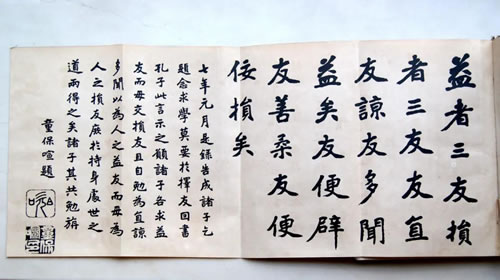 益者三友損
者三友友直
友諒友多聞
益矣友便辟
友善柔友便
佞損矣
七年元月是錄告成諸子乞
題念求學莫要於擇友因書
孔子此言示之願諸子各求益
友而毋交損友且自勉為直諒
多聞以為人之益友而毋為
人之損友庶於持身處世之
道兩得之矣諸子其共勉旃
童保暄題
童保暄印